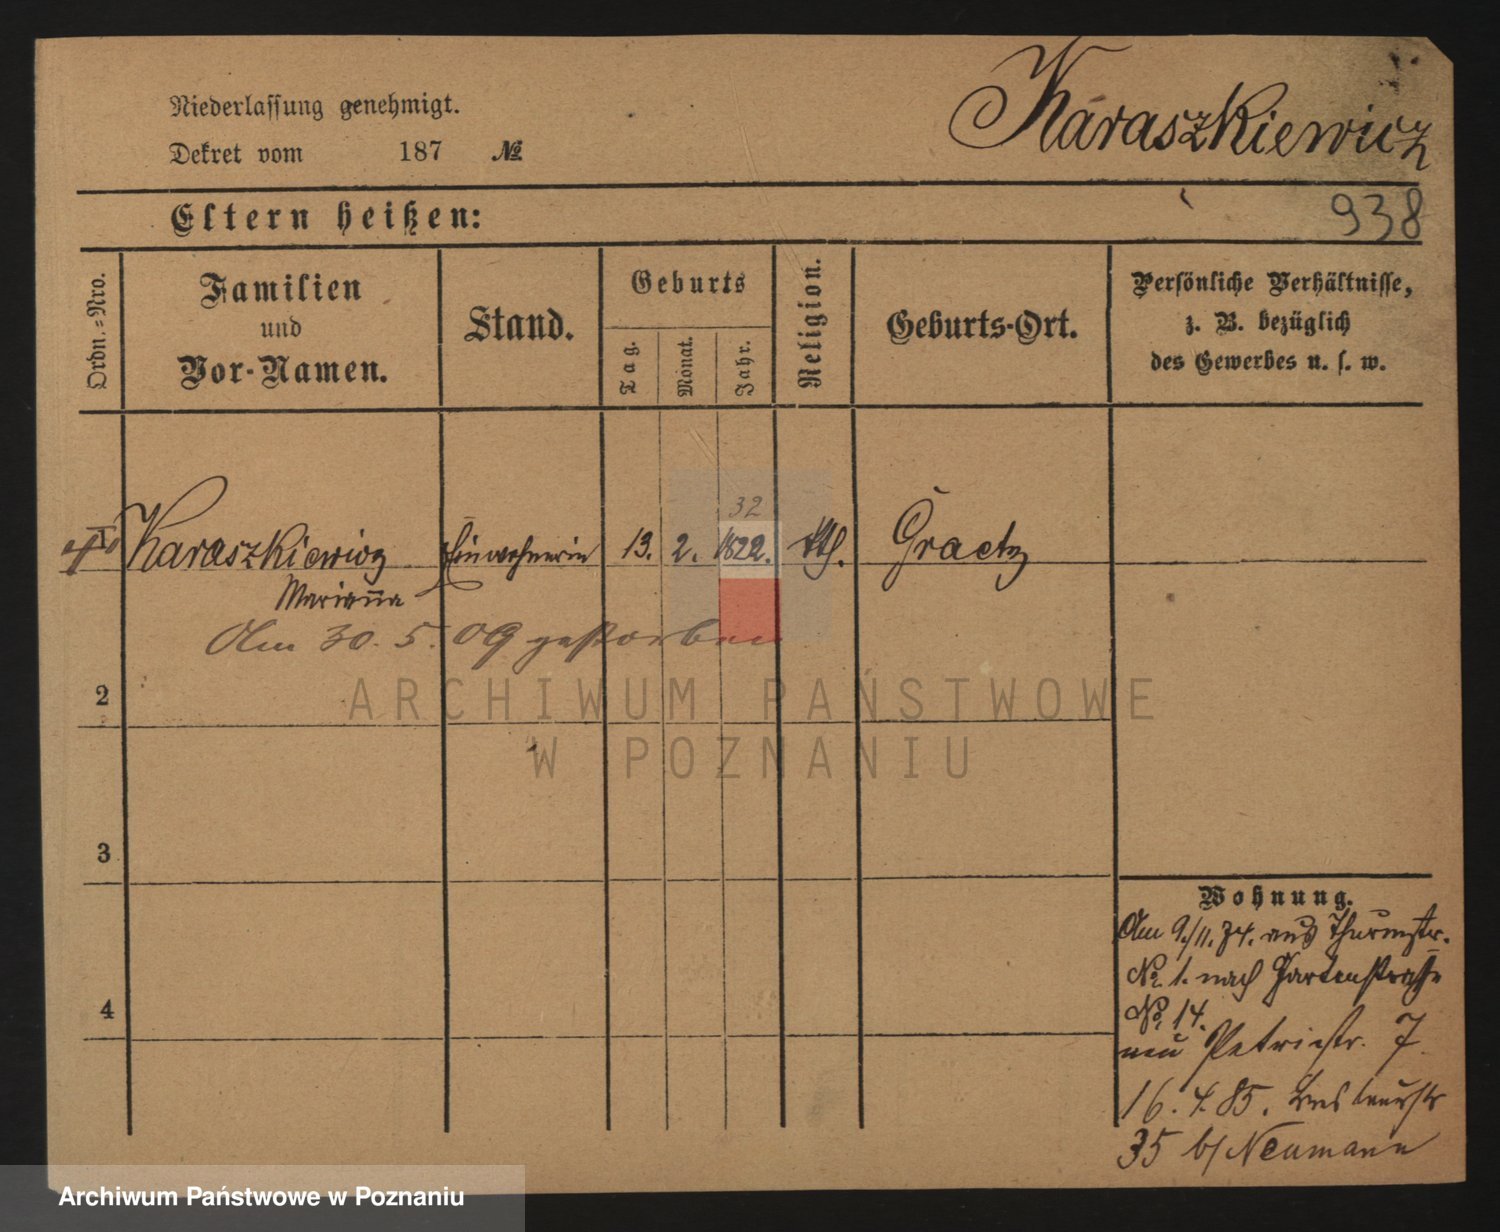 Karaszkiewicz
Niederlassung genehmigt.
Dekret vom 187 №
938
Eltern heißen:
Ordn.=Nro.
Familien
und
Vor-Namen.
Stand.
Geburts
Tag.
Monat.
Jahr.
Religion.
Geburts-Ort.
Persönliche Verhältnisse,
z. B. bezüglich
des Gewerbes u. s. w.
32
1 Karaszkiewicz Einwohnerin 13. 2. 1822. kth. Graetz
Marianna
Am 30. 5. 09 gestorben
2
3
4
Wohnung.
Am 9./11. 74. aus Thurmstr.
No. 1. nach Gartenstraße
No. 14.
neu Petristr. 7.
16. 4. 85.
35 b/ Neumann
ARCHIWUM PAŃSTWOWE
W POZNANIU
Archiwum Państwowe w Poznaniu